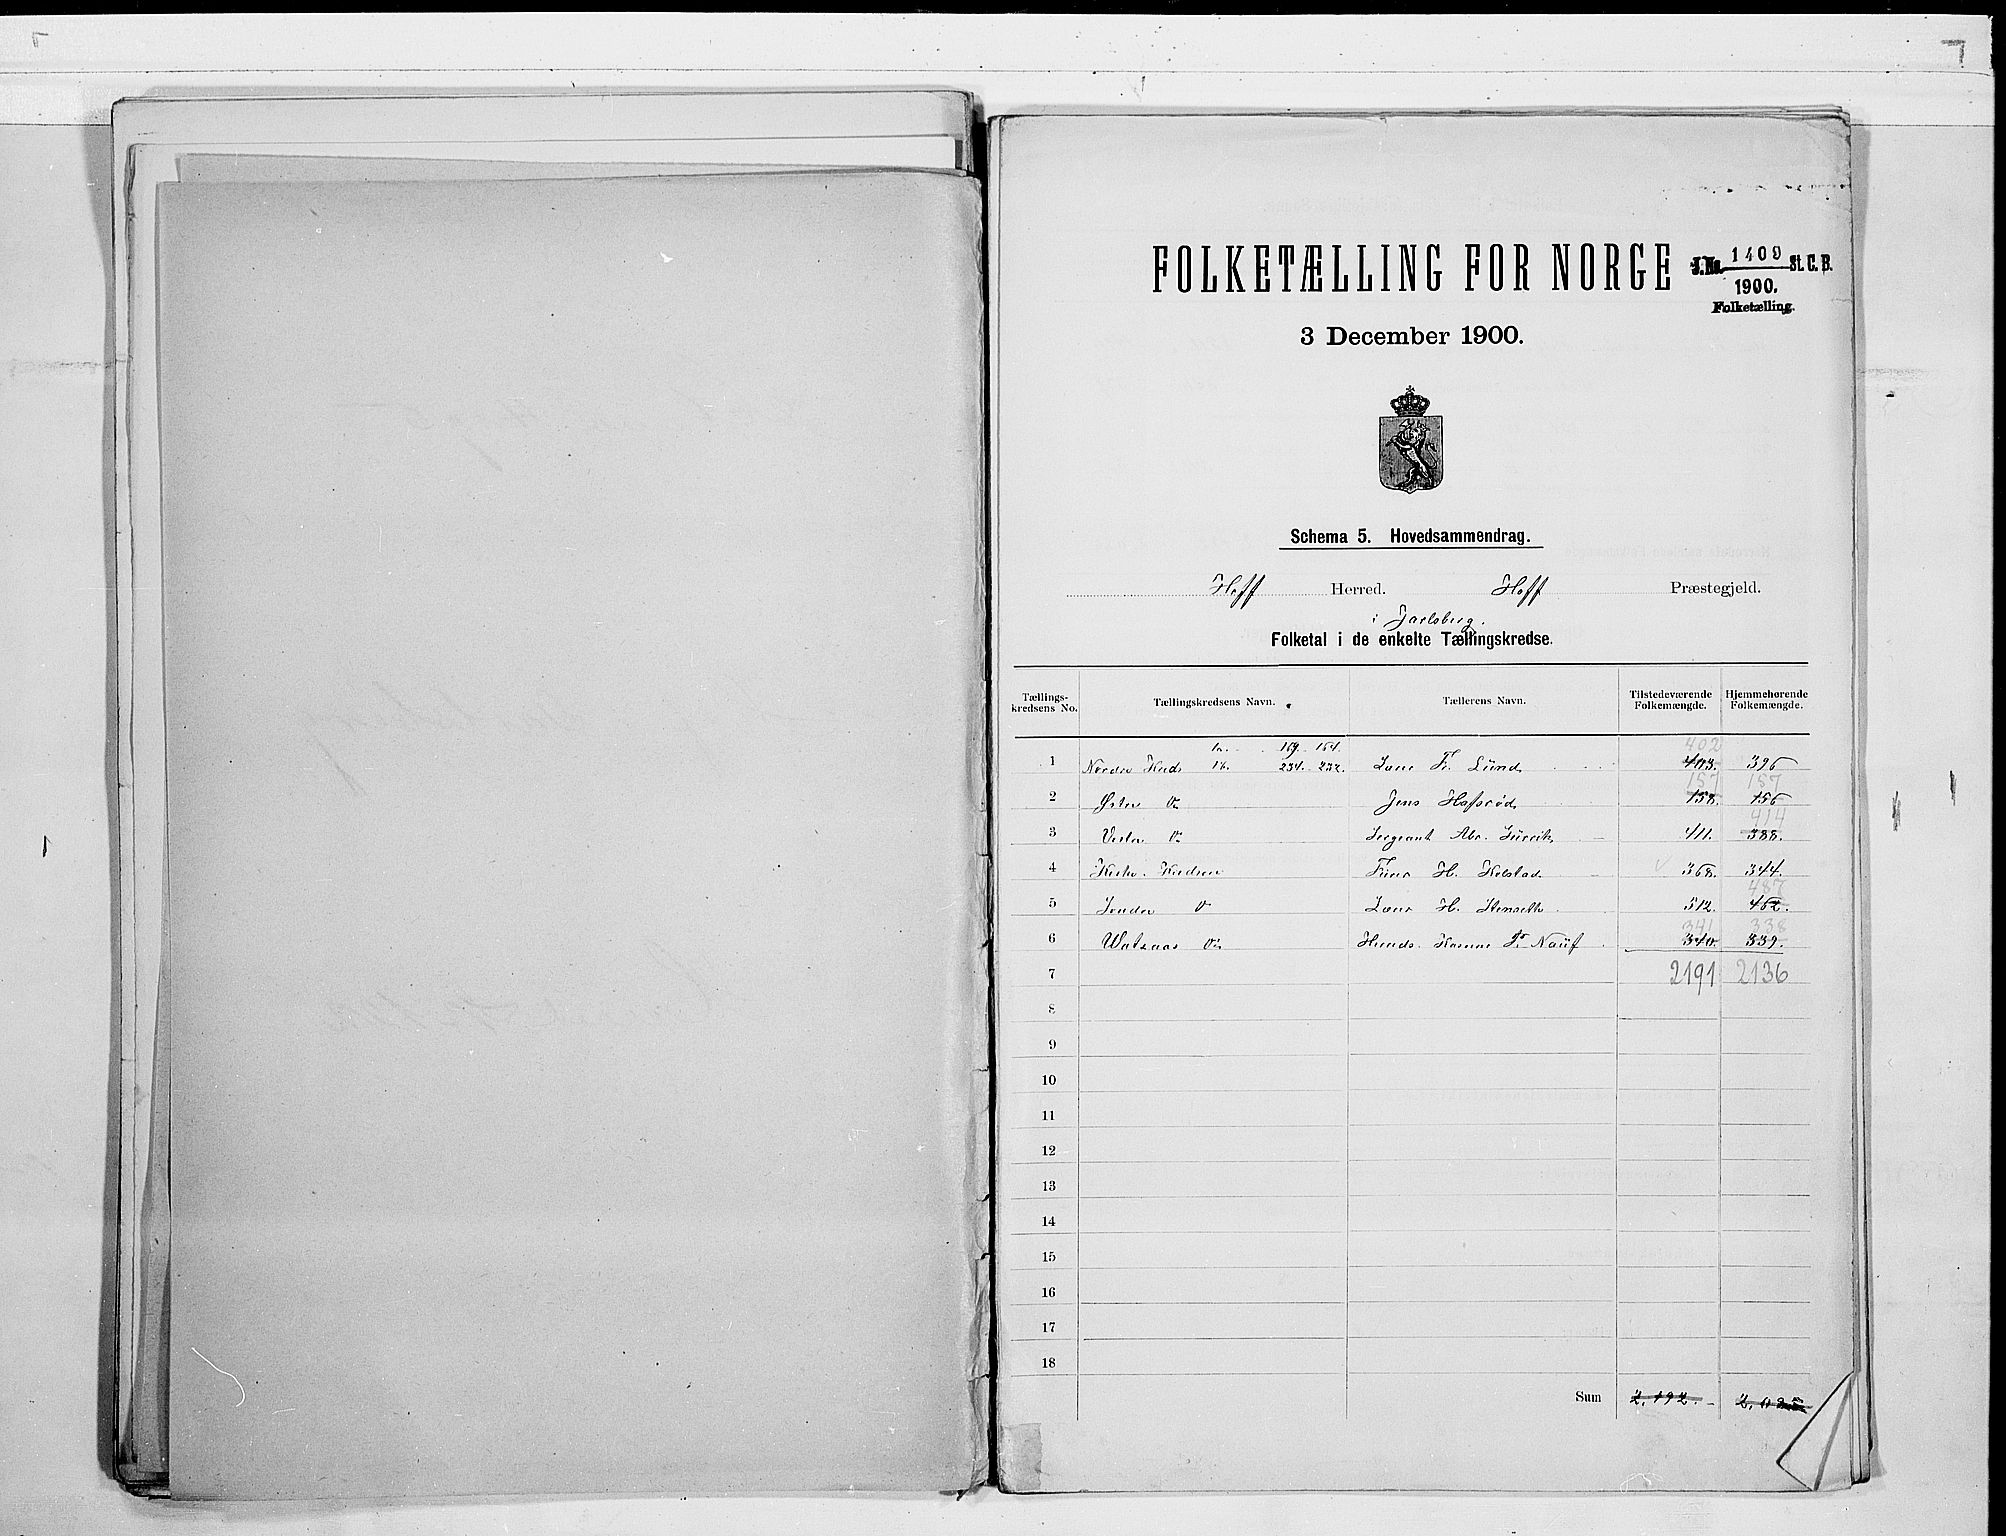 FOLKETÆLLING FOR NORGE
J.No. 1409 St. C. B.
1900.
Folketælling.
3 December 1900.
Schema 5. Hovedsammendrag.
Hoff Herred. Hoff Præstegjeld.
i Jarlsberg.
Folketal i de enkelte Tællingskredse.
Tællings-kredsens No. Tællingskredsens Navn. Tællerens Navn. Tilstedeværende Folkemængde. Hjemmehørende Folkemængde.
1a. 169. 164. 402
1 Nordre Kreds 1b. 234. 232. Lærer Fr. Lund 403. 396
157 157
2 Østre Do Jens Hafsrød 158. 156
414
3 Vestre Do Sergeant Abr. 411. 388.
4 Kirke-Kredsen H. Kolstad 368. 344.
487
5 Søndre Do Lærer H. 512. 462.
341 338
6 Do 340. 339.
7 2191 2136
8
9
10
11
12
13
14
15
16
17
18
Sum 2,192. 2,085